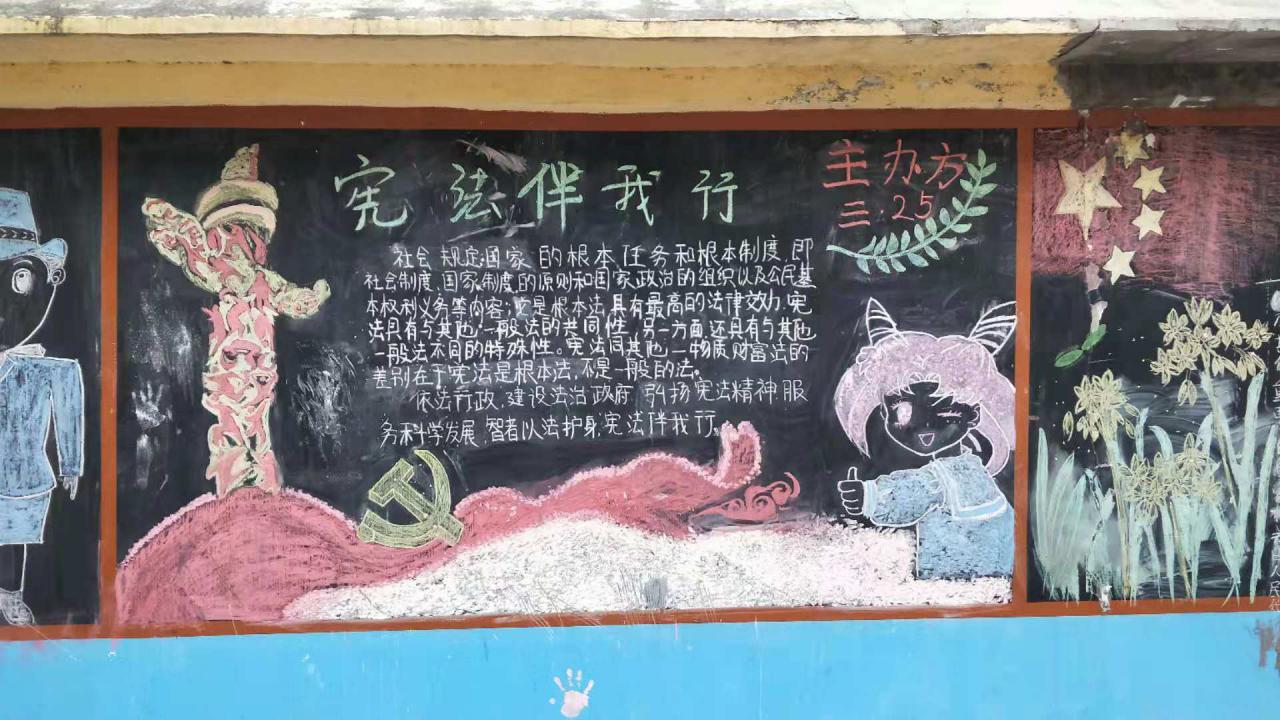 宪法伴我行
主办方
三.25
社会规定国家的根本任务和根本制度,即
社会制度、国家制度的原则和国家政治的组织以及公民基
本权利义务等内容;它是根本法,具有最高的法律效力.宪
法具有与其他一般法的共同性,另一方面,还具有与其他
一般法不同的特殊性。宪法同其他一物质财富法的
差别在于宪法是根本法,不是一般的法。
依法行政、建设法治政府,弘扬宪法精神服
务科学发展,智者以法护身,宪法伴我行。